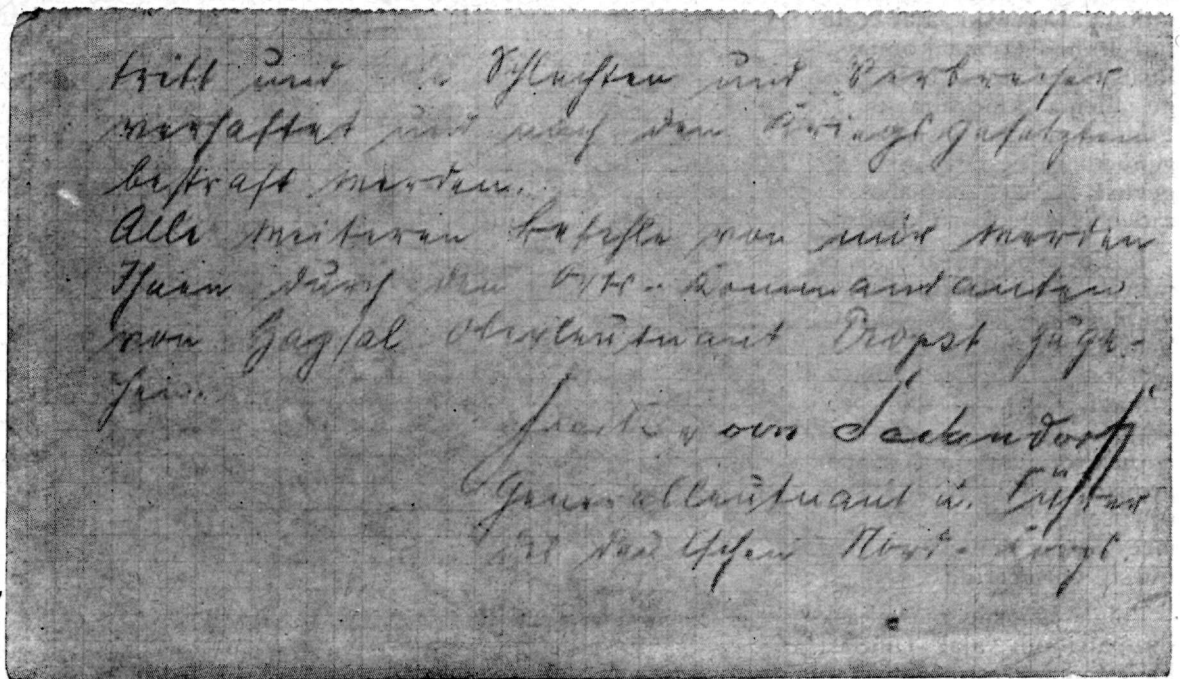 tritt und Schlechten und Verbrecher
verhaftet und nach den Kriegsgesetzten
bestraft werden.
Alle weiteren Befehle von mir werden
Ihnen durch den Orts-Kommandanten
von Oberleutnant Propst zuge-
hen.
von Seckendorff
Generalleutnant u. Führer
des deutschen Nord-Korps.